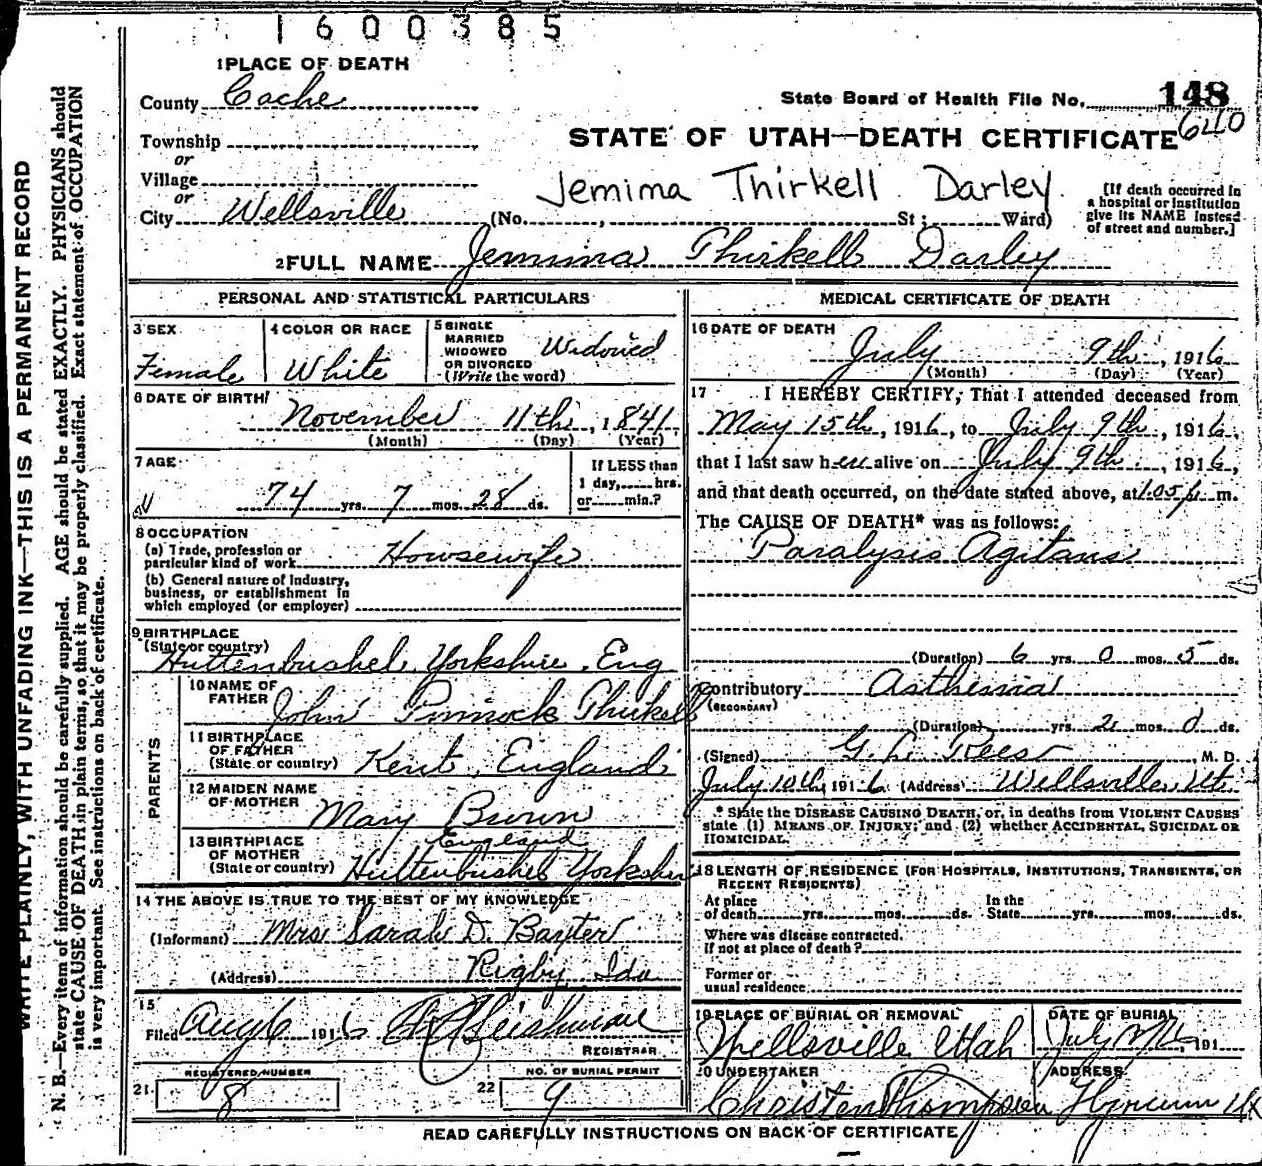 1600385
1 PLACE OF DEATH
County Cache
State Board of Health File No. 148
640
Township
or
Village
or
City Wellsville
STATE OF UTAH—DEATH CERTIFICATE
Jemima Thirkell Darley
(No. , St; Ward)
[If death occurred in
a hospital or institution
give its NAME instead
of street and number.]
2 FULL NAME Jemima Thirkell Darley
PERSONAL AND STATISTICAL PARTICULARS
3 SEX
Female
4 COLOR OR RACE
White
5 SINGLE
MARRIED
WIDOWED
OR DIVORCED
(Write the word)
Widowed
6 DATE OF BIRTH
November 11th, 1841
(Month) (Day) (Year)
7 AGE
74 yrs. 7 mos. 28 ds.
If LESS than
1 day, hrs.
or min.?
8 OCCUPATION
(a) Trade, profession or
particular kind of work Howsewife
(b) General nature of Industry,
business, or establishment in
which employed (or employer)
9 BIRTHPLACE
(State or country)
Huttenbushel, Yorkshire, Eng
PARENTS
10 NAME OF
FATHER John Pinnock Thirkell
11 BIRTHPLACE
OF FATHER
(State or country) Kent, England
12 MAIDEN NAME
OF MOTHER Mary Brown
13 BIRTHPLACE
OF MOTHER
(State or country)
England
Huttenbushel Yorkshire
14 THE ABOVE IS TRUE TO THE BEST OF MY KNOWLEDGE
(Informant) Mrs Sarah D. Baxter
(Address) Rigby, Ida
15
Filed Aug 6 1916
REGISTRAR
21 REGISTERED NUMBER
8
22 NO. OF BURIAL PERMIT
9
MEDICAL CERTIFICATE OF DEATH
16 DATE OF DEATH
July 9th, 1916
(Month) (Day) (Year)
17 I HEREBY CERTIFY, That I attended deceased from
May 15th, 1916, to July 9th, 1916,
that I last saw her alive on July 9th, 1916,
and that death occurred, on the date stated above, at 1.05 p m.
The CAUSE OF DEATH* was as follows:
Paralysis Agitans
(Duration) 6 yrs. 0 mos. 5 ds.
Contributory Asthenia
(SECONDARY)
(Duration) yrs. 2 mos. 0 ds.
(Signed) Rees M. D.
July 10th, 1916 (Address) Wellsville, Ut.
* State the DISEASE CAUSING DEATH, or, in deaths from VIOLENT CAUSES
state (1) MEANS OF INJURY; and (2) whether ACCIDENTAL, SUICIDAL OR
HOMICIDAL.
18 LENGTH OF RESIDENCE (FOR HOSPITALS, INSTITUTIONS, TRANSIENTS, OR
RECENT RESIDENTS)
At place
of death yrs. mos. ds.
In the
State yrs. mos. ds.
Where was disease contracted,
If not at place of death?
Former or
usual residence
19 PLACE OF BURIAL OR REMOVAL
Wellsville Utah
DATE OF BURIAL
July 191
20 UNDERTAKER
Christen Thompson
ADDRESS
Hyrum
READ CAREFULLY INSTRUCTIONS ON BACK OF CERTIFICATE
WRITE PLAINLY, WITH UNFADING INK—THIS IS A PERMANENT RECORD
N. B.—Every item of information should be carefully supplied. AGE should be stated EXACTLY. PHYSICIANS should
state CAUSE OF DEATH in plain terms, so that it may be properly classified. Exact statement of OCCUPATION
is very important. See instructions on back of certificate.